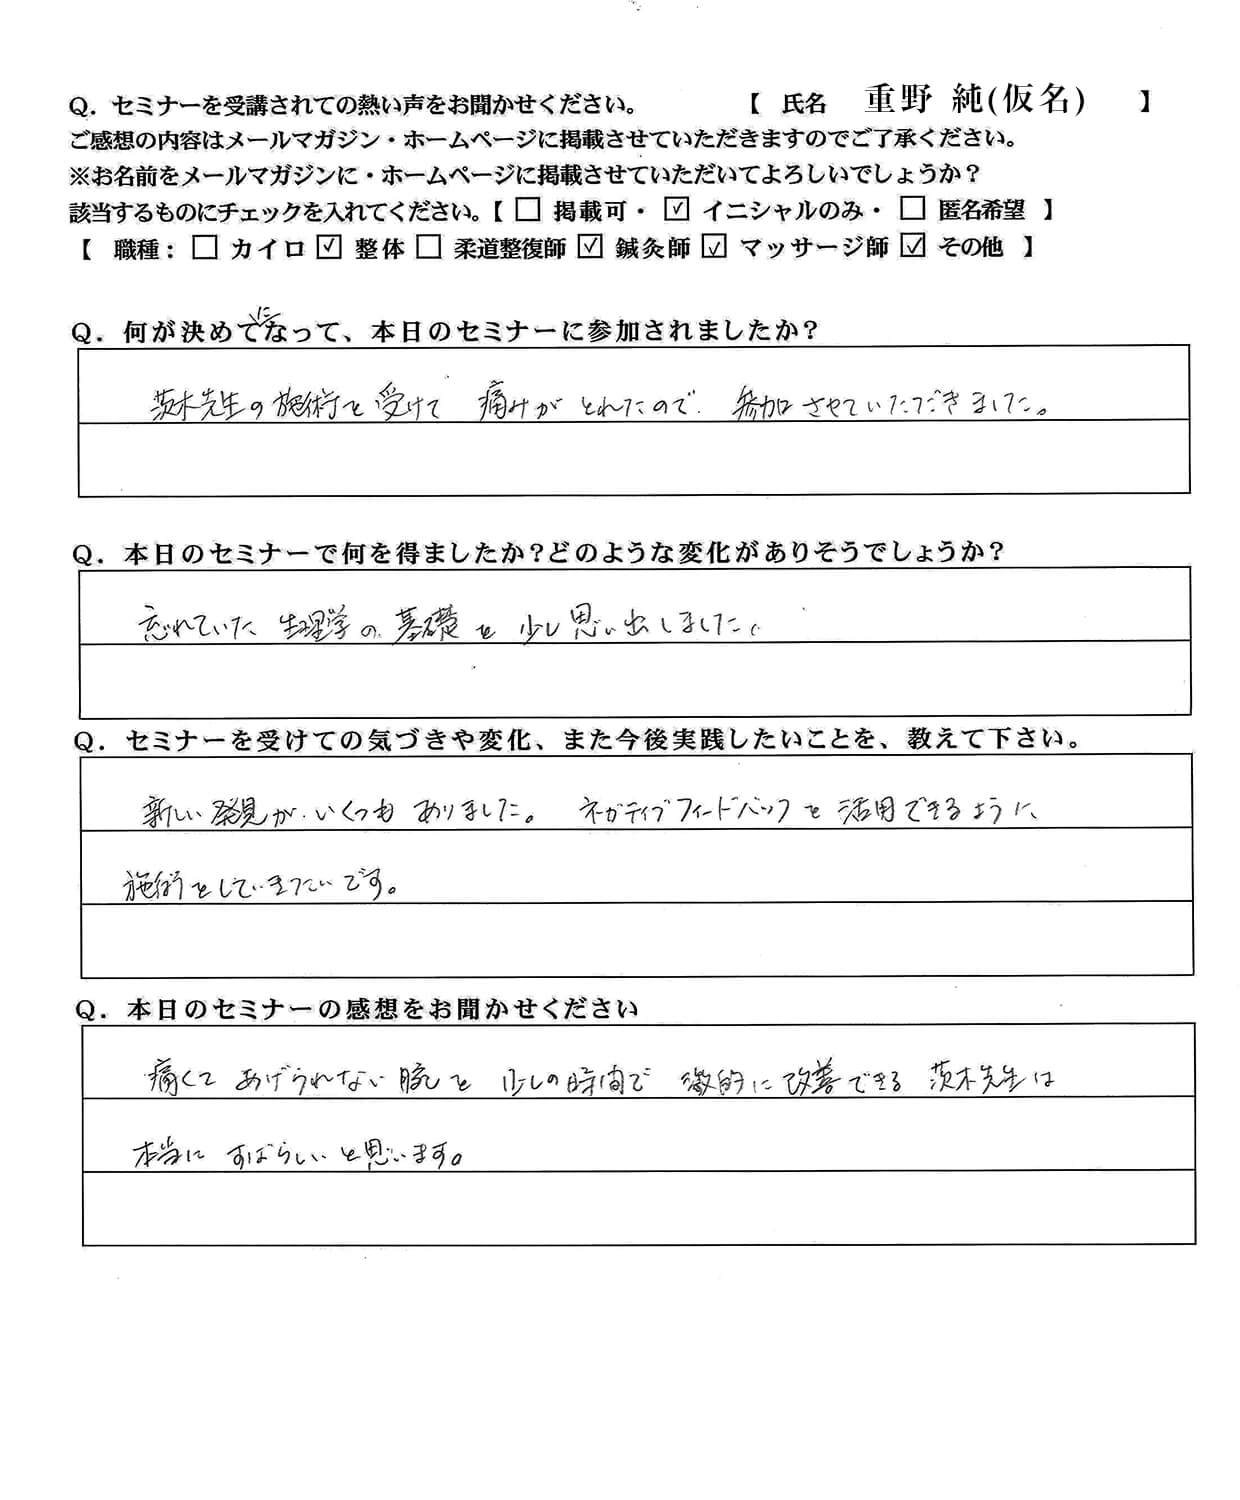 Q. セミナーを受講されての熱い声をお聞かせください。 【 氏名 重野 純(仮名) 】
ご感想の内容はメールマガジン・ホームページに掲載させていただきますのでご了承ください。
※お名前をメールマガジンに・ホームページに掲載させていただいてよろしいでしょうか？
該当するものにチェックを入れてください。【 □ 掲載可・ ☑ イニシャルのみ・ □ 匿名希望 】
【 職種： □ カイロ ☑ 整体 □ 柔道整復師 ☑ 鍼灸師 ☑ マッサージ師 ☑ その他 】
に
Q. 何が決めてなって、本日のセミナーに参加されましたか？
茨木先生の施術を受けて 痛みが とれたので 参加させていただきました。
Q. 本日のセミナーで何を得ましたか？どのような変化がありそうでしょうか？
忘れていた 生理学の 基礎を 少し思い出しました。
Q. セミナーを受けての気づきや変化、また今後実践したいことを、教えて下さい。
新しい発見が いくつも ありました。 ネガティブフィードバックを 活用できるように
施術をしていきたいです。
Q. 本日のセミナーの感想をお聞かせください
痛くて あげられない 腕を 少しの時間で 激的に 改善できる 茨木先生は
本当に すばらしい と思います。